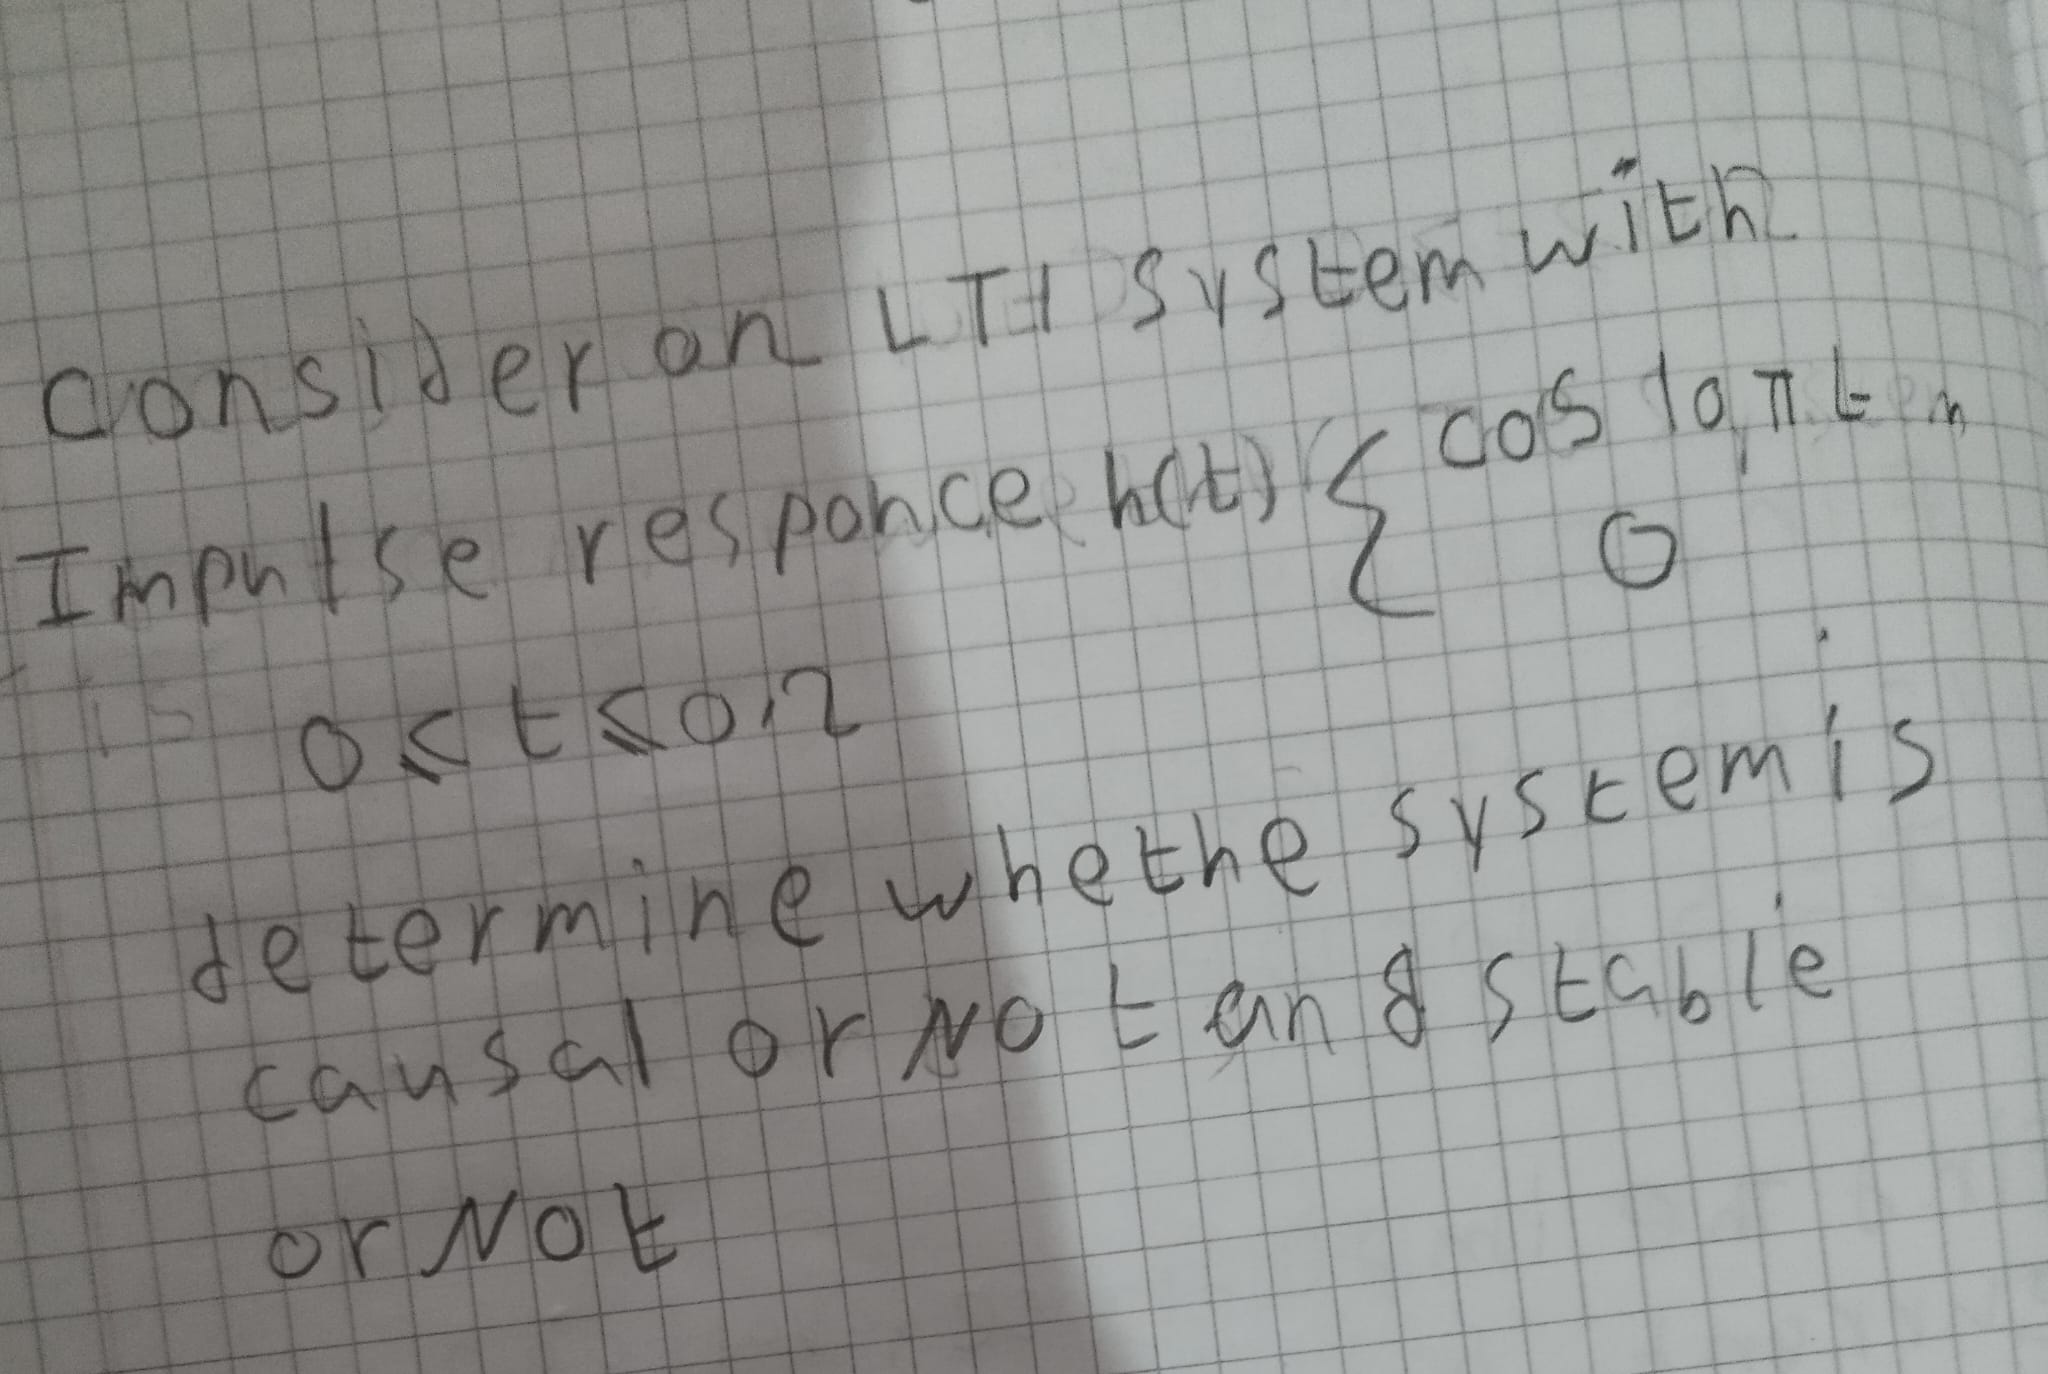 Consider an LTI system with
Impulse responce h(t) { cos 10πt
0
0 ≤ t ≤ 0,2
determine whethe system is
causal or Not and stable
or Not